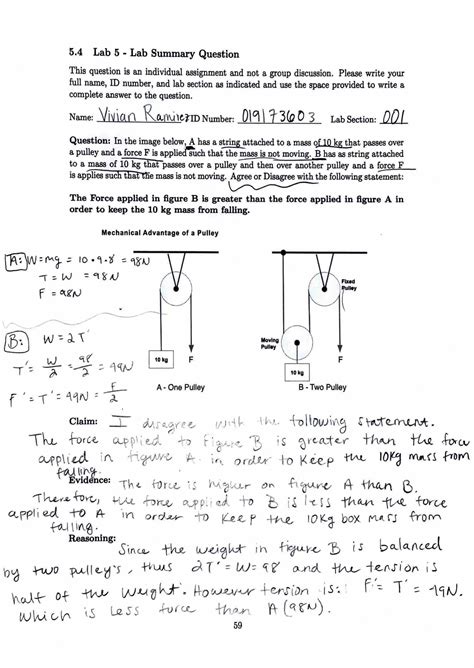 5.4 Lab 5 - Lab Summary Question
This question is an individual assignment and not a group discussion. Please write your
full name, ID number, and lab section as indicated and use the space provided to write a
complete answer to the question.
Name: Vivian Ramirez ID Number: 019173603 Lab Section: 001
Question: In the image below, A has a string attached to a mass of 10 kg that passes over
a pulley and a force F is applied such that the mass is not moving. B has as string attached
to a mass of 10 kg that passes over a pulley and then over another pulley and a force F
is applies such that the mass is not moving. Agree or Disagree with the following statement:
The Force applied in figure B is greater than the force applied in figure A in
order to keep the 10 kg mass from falling.
Mechanical Advantage of a Pulley
A: W=mg = 10 · 9.8 = 98N
T = W = 98N
F = 98N
Fixed
Pulley
B: W = 2T'
T' = W/2 = 98/2 = 49N
F' = T' = 49N = F/2
Moving
Pulley
10 kg
F
10 kg
F
A - One Pulley
B - Two Pulley
Claim: I disagree with the following statement.
The force applied to Figure B is greater than the force
applied in figure A in order to keep the 10kg mass from
falling.
Evidence: The force is higher on figure A than B.
Therefore, the force applied to B is less than the force
applied to A in order to keep the 10kg box mass from
falling.
Reasoning:
Since the weight in figure B is balanced
by two pulley's, thus 2T' = W = 98 and the tension is
half of the weight. However tension is: F' = T' = 49N.
which is less force than A (98N).
59